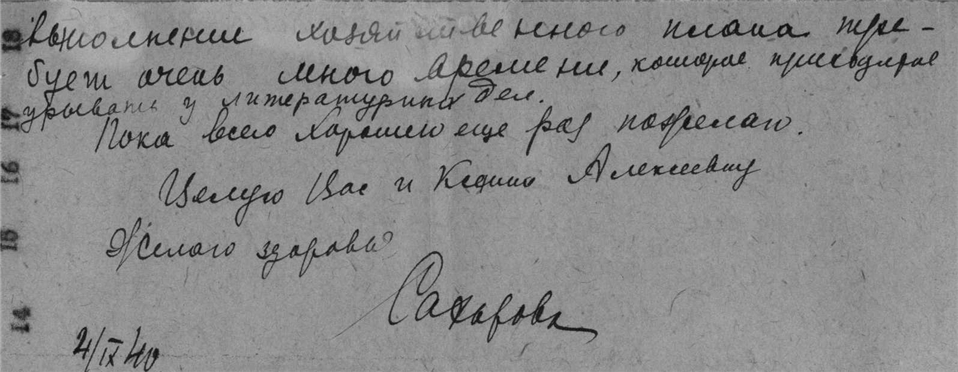 выполнение хозяйственного плана тре-
бует очень много времени, которое приходится
урывать у литературных дел.
Пока всего хорошего еще раз пожелаю.
Целую Вас и Ксению Алексеевну
Желаю здоровья
Сахарова
2/IX 40
18
17
16
15
14